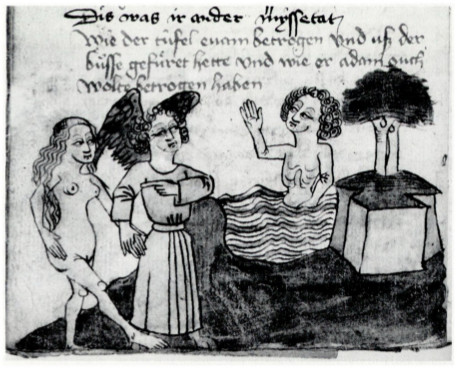 Dis was ir ander Myssetat
wie der tüfel euam betrogen vnd vß der
büsse gefüret hette vnd wie er adam ouch
wolte betrogen haben